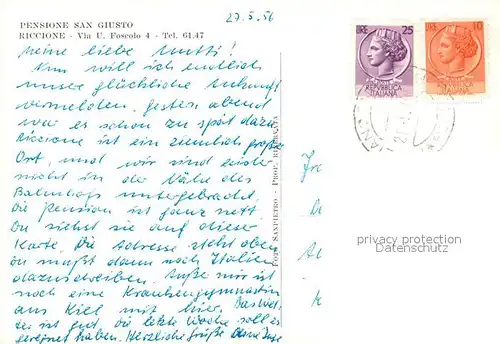 PENSIONE SAN GIUSTO
RICCIONE - Via U. Foscolo 4 - Tel. 61.47
27.5.56
Meine liebe Mutti!
Nun will ich endlich
unsere glückliche Ankunft
vermelden. Gestern abend
war es schon zu spät dazu.
Riccione ist ein ziemlich großer
Ort, und wir sind leider
nicht in der Nähe des
Bahnhofs untergebracht.
Die Pension ist ganz nett.
Du siehst sie auf dieser
Karte. Die Adresse steht oben
du mußt dann noch Italien
dazuschreiben. Außer mir ist
noch eine Krankengymnastin
aus Kiel mit hier. Das Wet-
ter ist gut, die letzte Woche soll es
geregnet haben. Herzliche Grüße Deine Inge
FOTO SANPIETRO - PROP. RISERVATA
LIRE 25
REPUBBLICA
ITALIANA
LIRE 10
REPUBBLICA
ITALIANA
privacy protection
Datenschutz